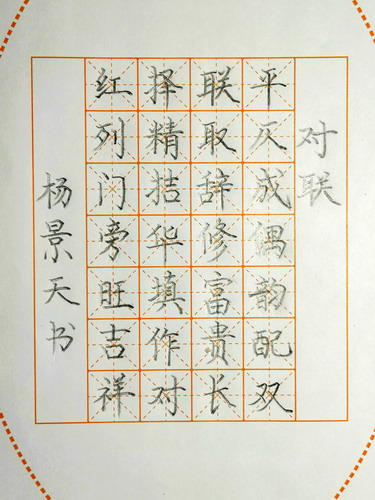 对联
平仄成偶韵配双
联取辞修富贵长
择精拮华填作对
红列门旁旺吉祥
杨景天书